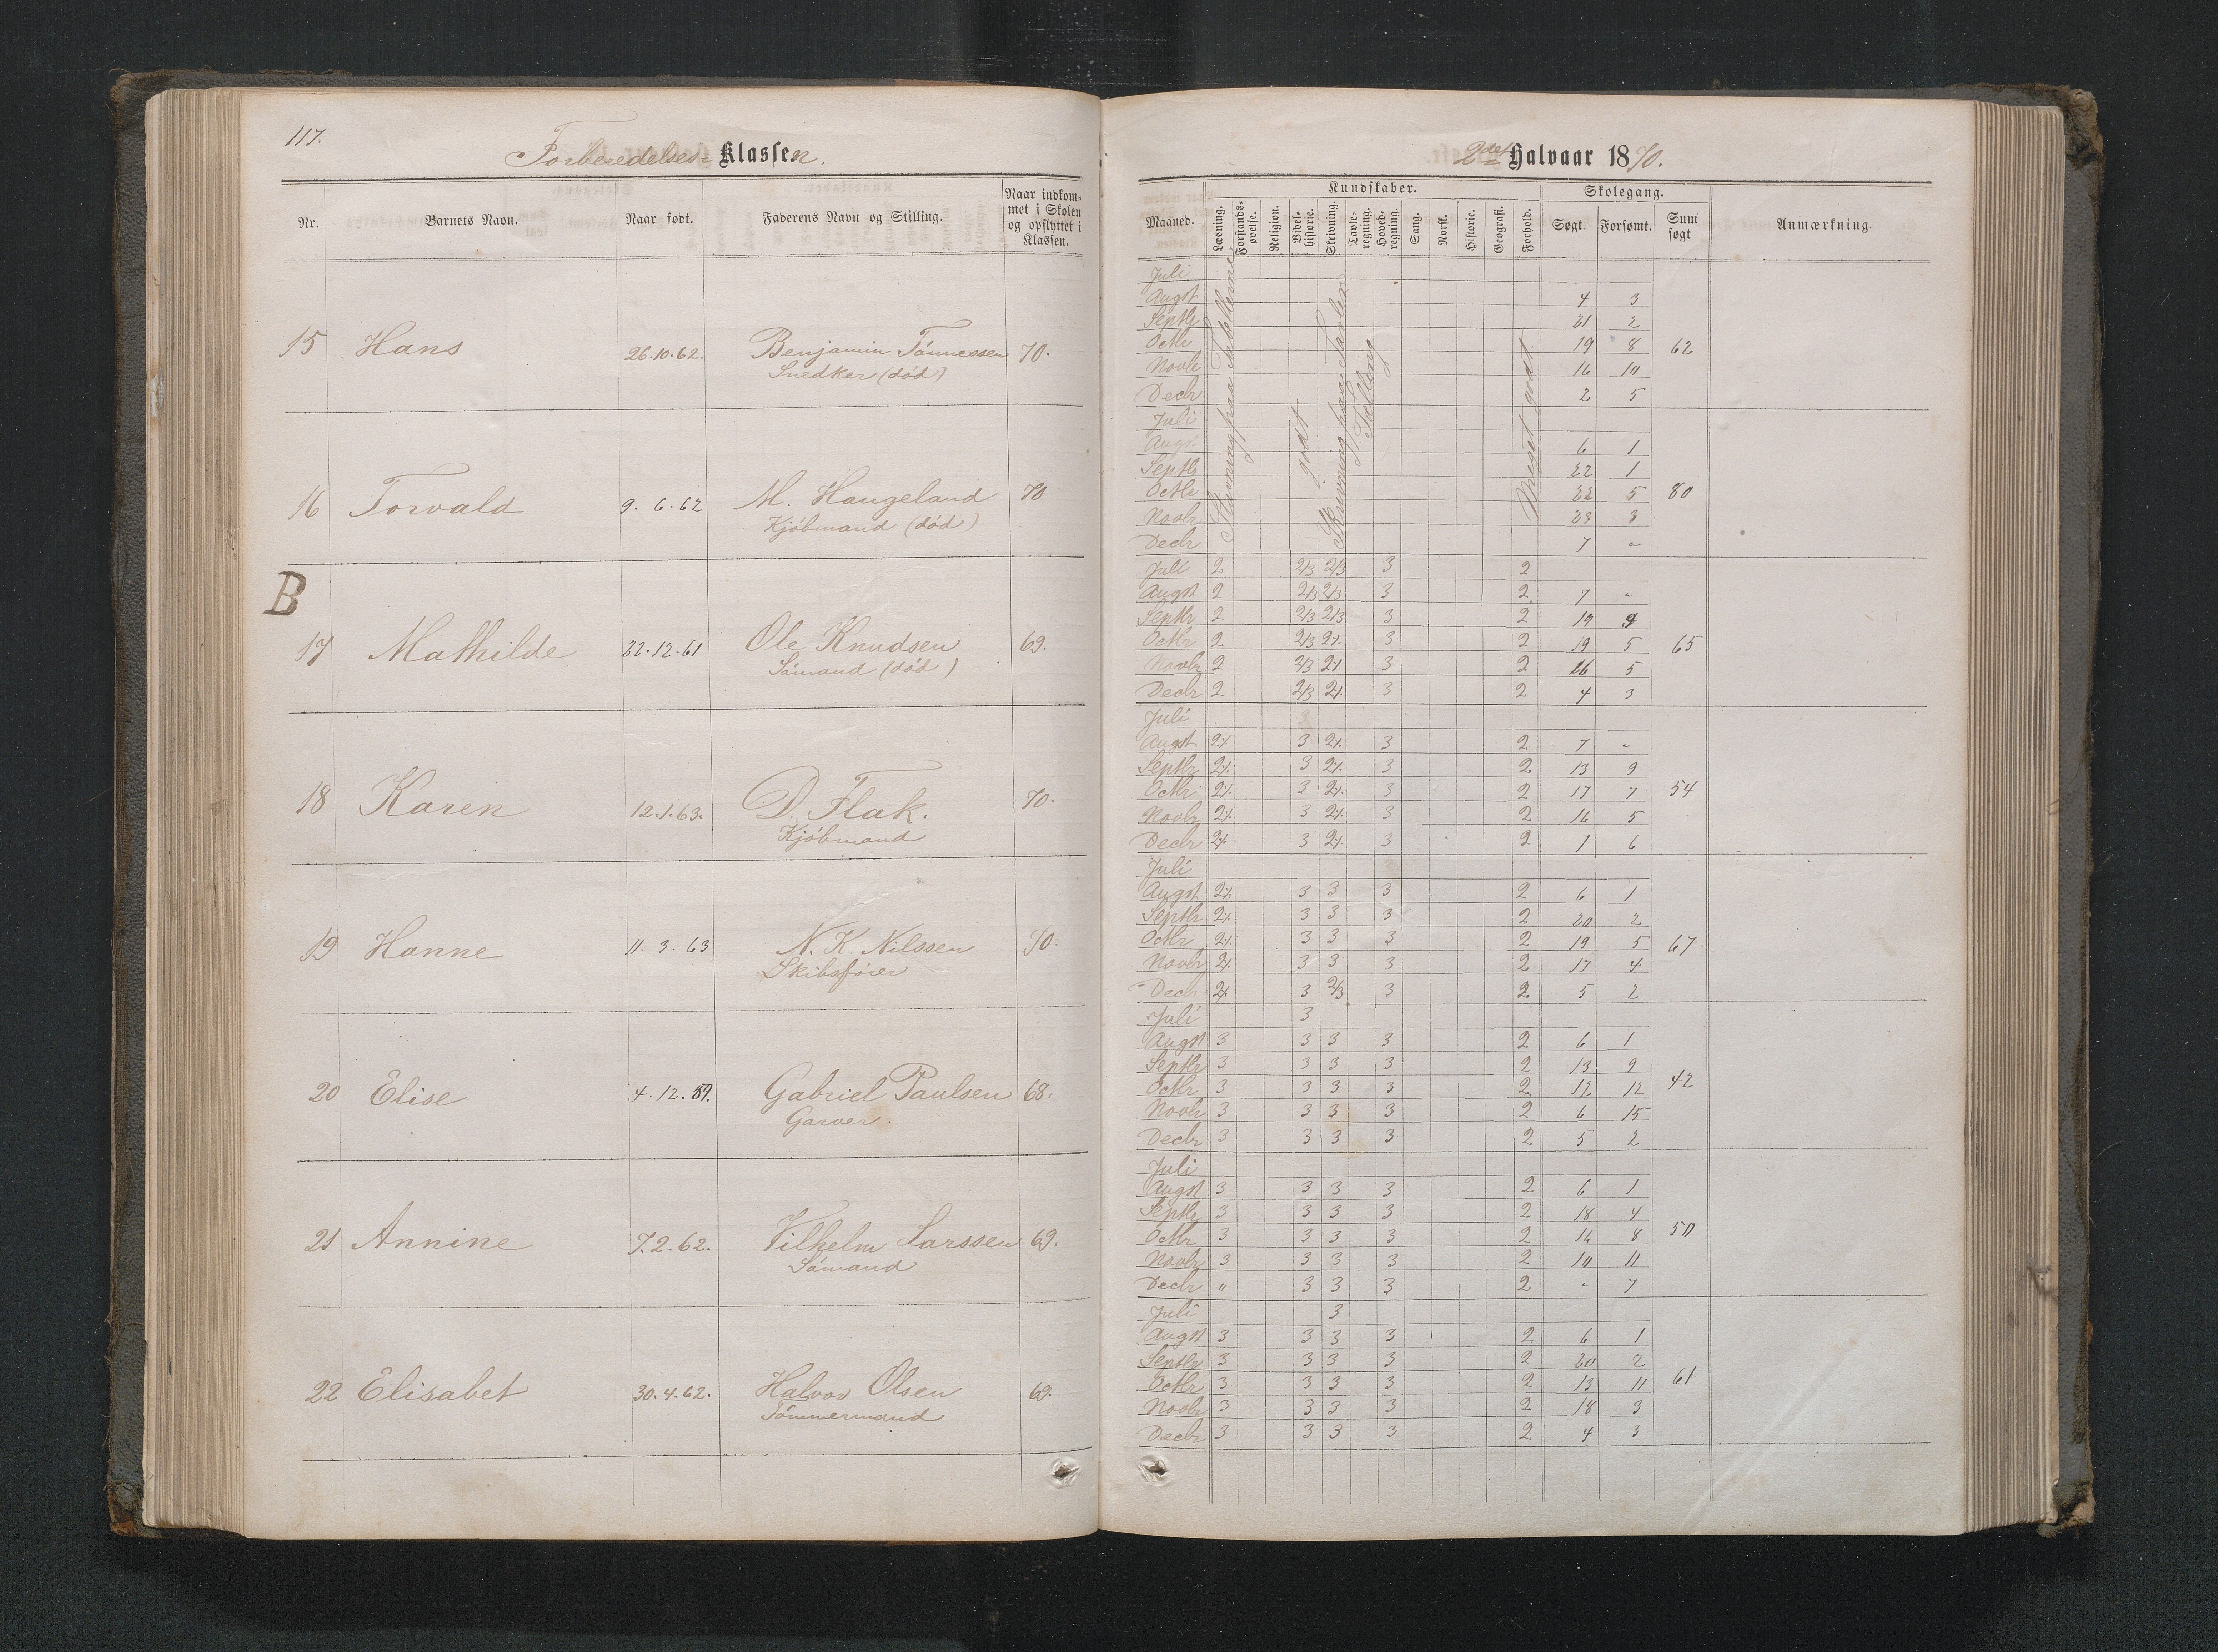 117.
Forberedelses-Klassen.
Nr. Barnets Navn. Naar født. Faderens Navn og Stilling. Naar indkommet i Skolen og opflyttet i Klassen.
15 Hans 26.10.62. Benjamin Tönnessen 70.
Snedker (död)
16 Torvald 9.6.62 M. Haugeland 70
Kjöbmand (död)
B
17 Mathilde 22.12.61 Ole Knudsen 69.
Sömand (död)
18 Karen 12.1.63. D. Flak. 70.
Kjöbmand
19 Hanne 11.3.63 N. K. Nilssen 70.
Skibsförer
20 Elise 4.12.59. Gabriel Paulsen 68.
Garver.
21 Annine 7.2.62. Vilhelm Larssen 69.
Sömand
22 Elisabet 30.4.62. Halvor Olsen 69.
Tömmermand
2det Halvaar 1870.
Kundskaber. Skolegang.
Maaned. Læsning. Forstands-øvelse. Religion. Bibel-historie. Skrivning. Tavle-regning. Hoved-regning. Sang. Norsk. Historie. Geografi. Forhold. Søgt. Forsømt. Sum søgt Anmærkning.
Stavning paa Tabellerne
godt
Skrivning paa Tavlen
Tælling
Meget godt.
Juli
Augst 4 3
Septbr 21 2
Octbr 19 8 62
Novbr 16 10
Decbr 2 5
Juli
Augst 6 1
Septbr 22 1
Octbr 22 5 80
Novbr 23 3
Decbr 7 -
Juli 2 2/3 2/3 3 2
Augst 2 2/3 2/3 3 2 7 -
Septbr 2 2/3 2/3 3 2 19 4
Octbr 2 2/3 2/. 3 2 19 5 65
Novbr 2 2/3 2/. 3 2 16 5
Decbr 2 2/3 2/. 3 2 4 3
Juli 3
Augst 2/. 3 2/. 3 2 7 -
Septbr 2/. 3 2/. 3 2 13 9
Octbr 2/. 3 2/. 3 2 17 7 54
Novbr 2/. 3 2/. 3 2 16 5
Decbr 2/. 3 2/. 3 2 1 6
Juli
Augst 2/. 3 3 3 2 6 1
Septbr 2/. 3 3 3 2 20 2
Octbr 2/. 3 3 3 2 19 5 67
Novbr 2/. 3 3 3 2 17 4
Decbr 2/. 3 2/3 3 2 5 2
Juli 3
Augst 3 3 3 3 2 6 1
Septbr 3 3 3 3 2 13 9
Octbr 3 3 3 3 2 12 12 42
Novbr 3 3 3 3 2 6 15
Decbr 3 3 3 3 2 5 2
Juli
Augst 3 3 3 3 2 6 1
Septbr 3 3 3 3 2 18 4
Octbr 3 3 3 3 2 16 8 50
Novbr 3 3 3 3 2 10 11
Decbr " 3 3 3 2 - 7
Juli 3
Augst 3 3 3 3 2 6 1
Septbr 3 3 3 3 2 20 2
Octbr 3 3 3 3 2 13 11 61
Novbr 3 3 3 3 2 18 3
Decbr 3 3 3 3 2 4 3